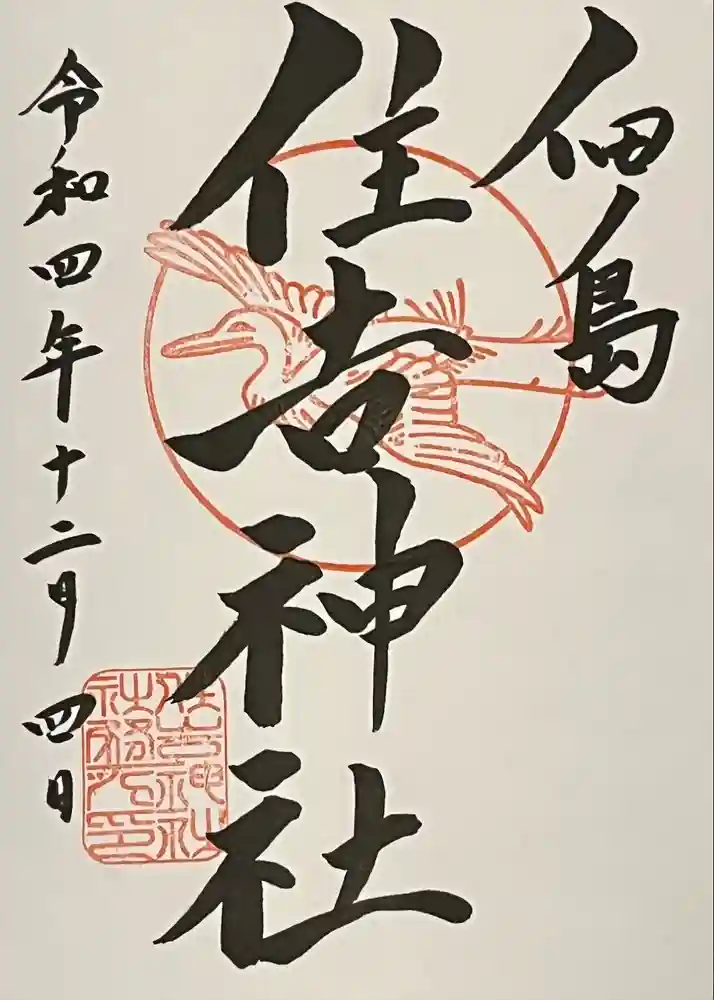 佃島
住吉神社
令和四年十二月四日
住吉神社
社務所印